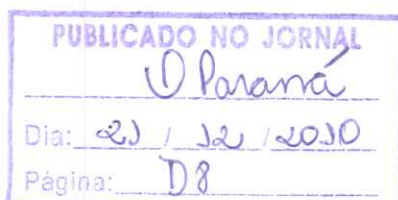 PUBLICADO NO JORNAL
O Paraná
Dia: 21 / 12 / 2010
Página: D8